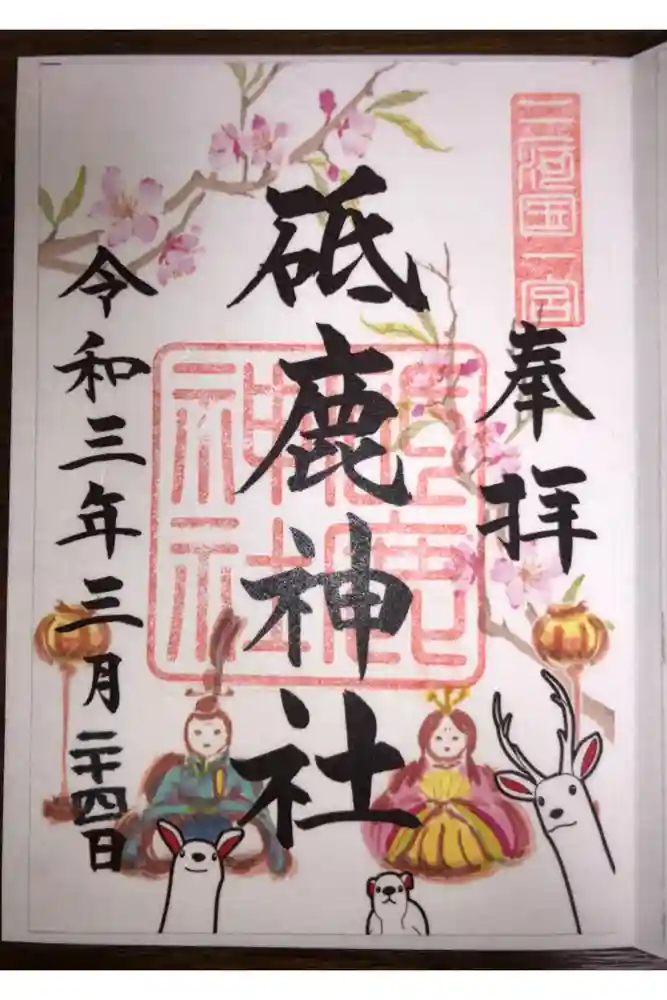 三河国一宮
奉拝
砥鹿神社
砥鹿神社
令和三年三月二十四日